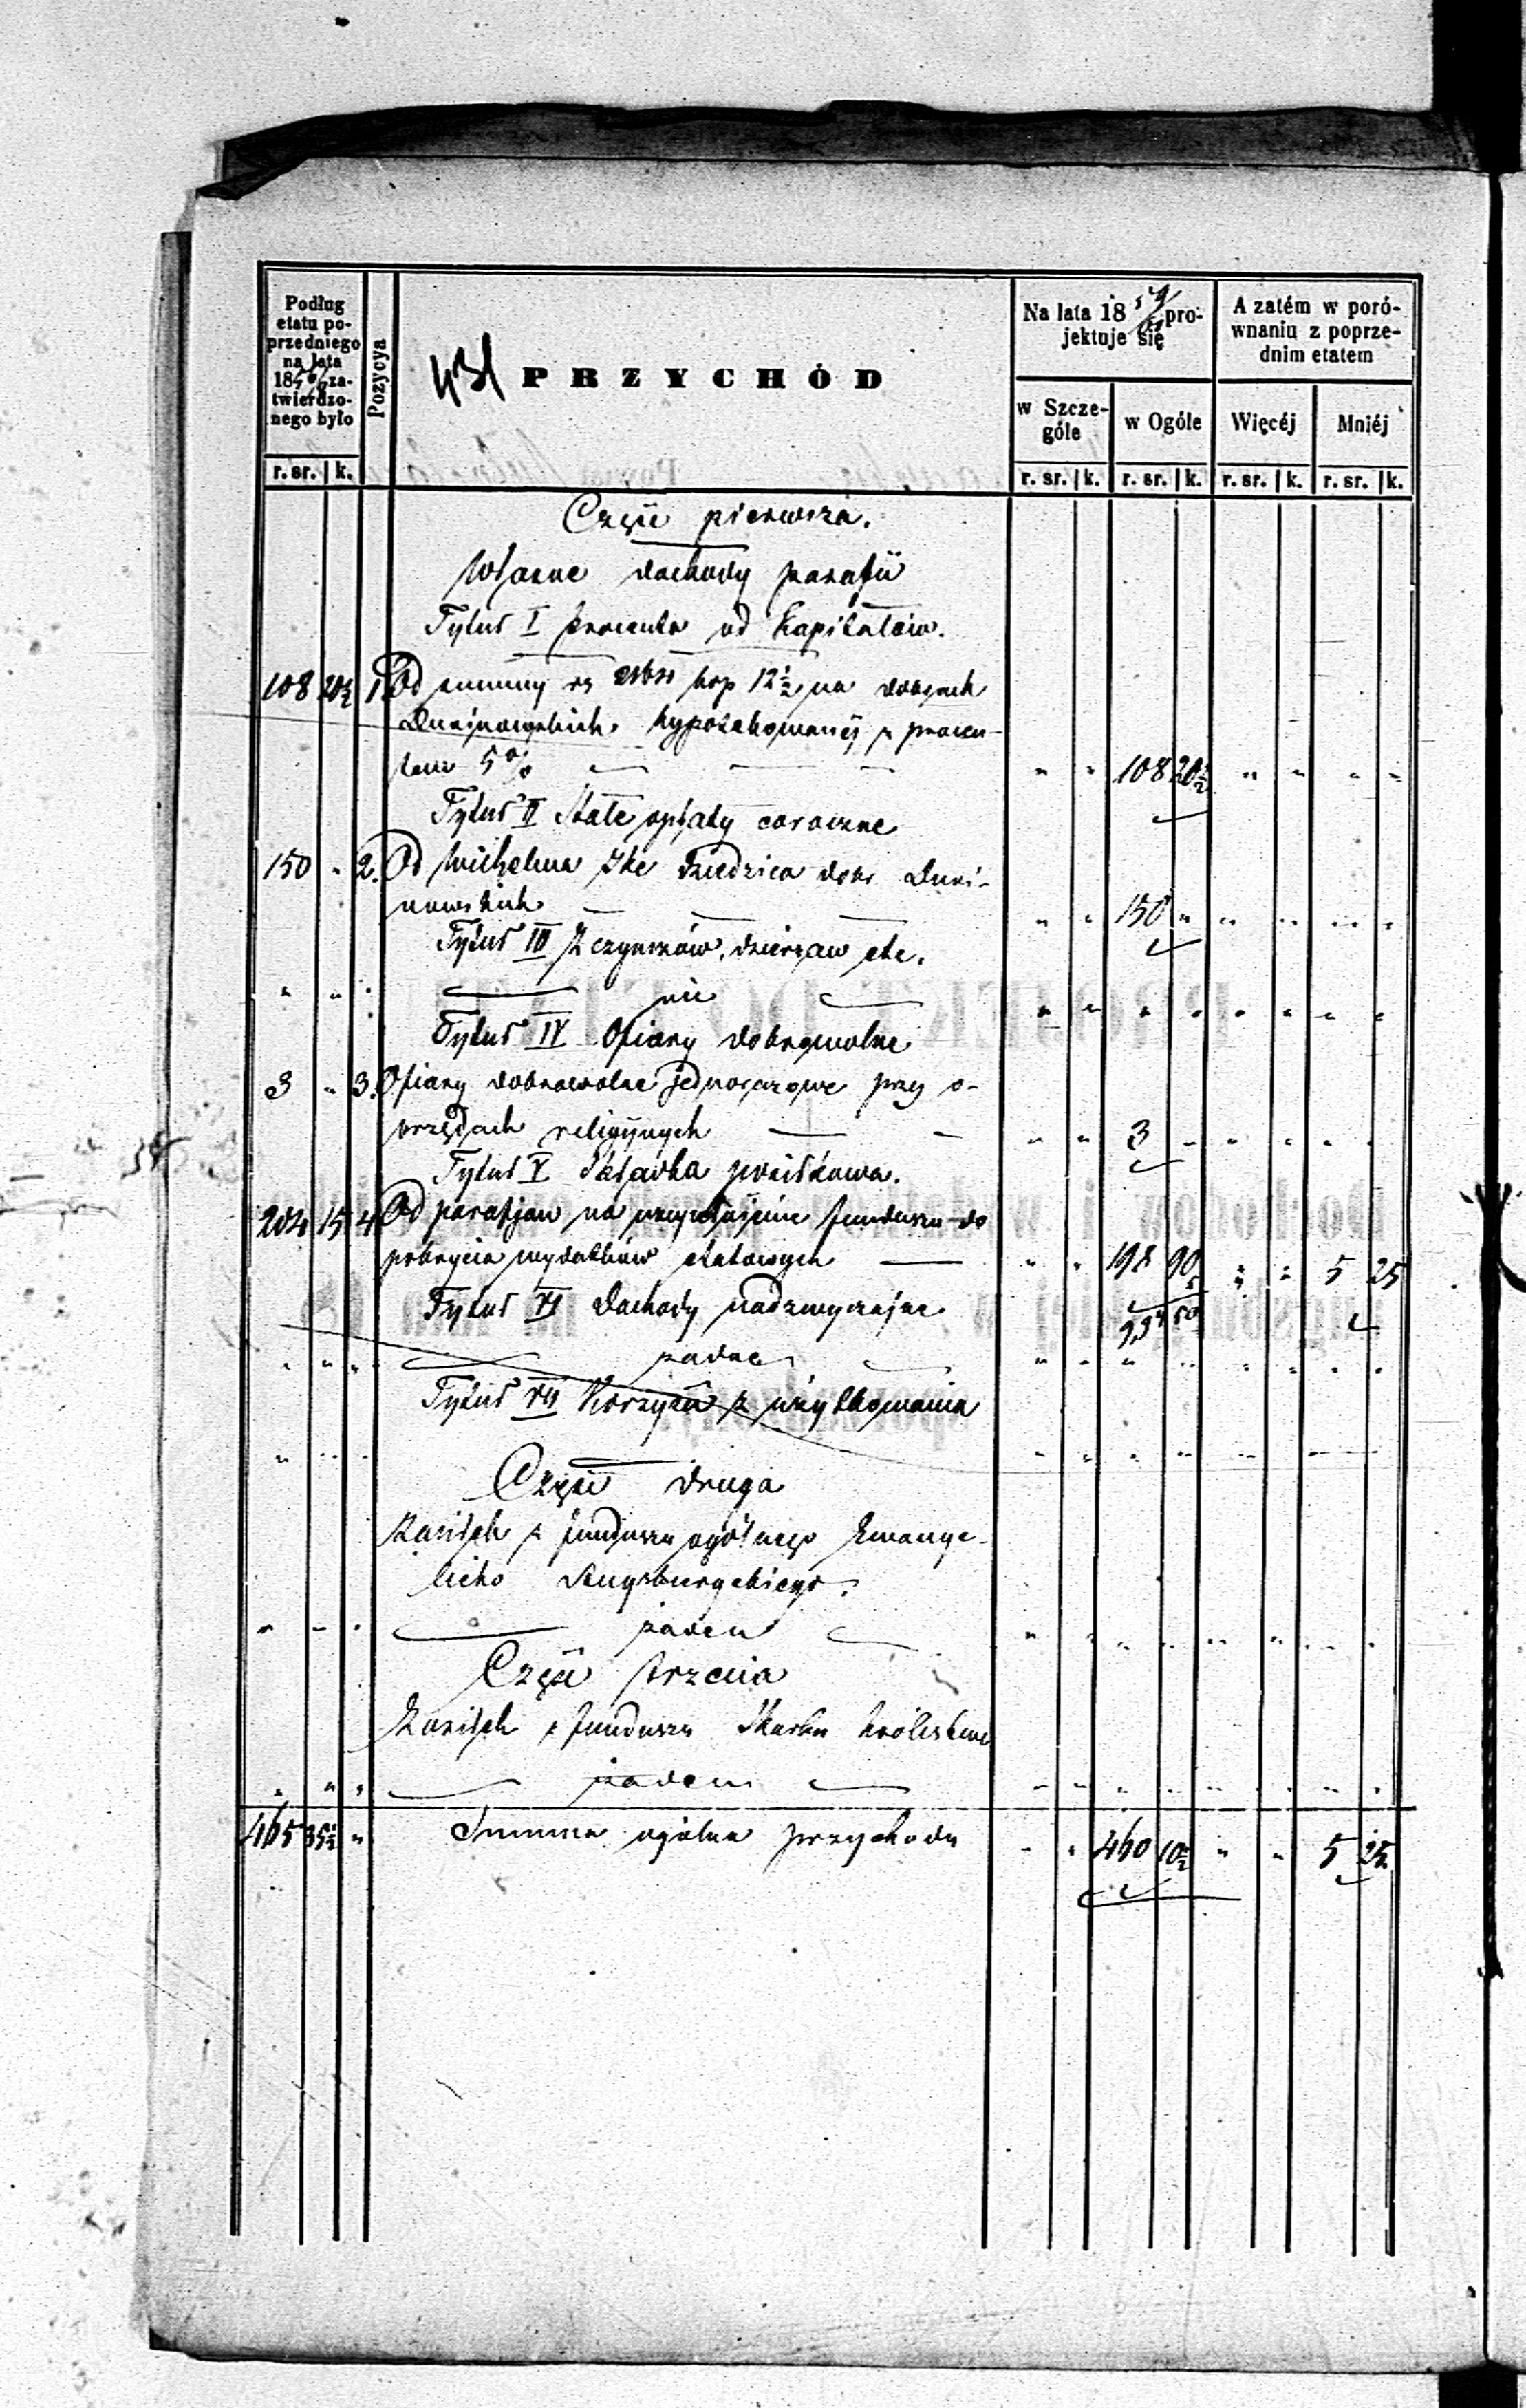 Podług
etatu po-
przedniego
na lata
185 za-
twierdzo-
nego było
Pozycya
431 PRZYCHÓD
Na lata 18 59/ pro-
jektuje się
A zatém w poró-
wnaniu z poprze-
dnim etatem
w Szcze-
góle
w Ogóle
Więcéj
Mniéj
r. sr. k. r. sr. k. r. sr. k. r. sr. k. r. sr. k.
Część pierwsza.
Własne dochody parafii
Tytuł I Procenta od Kapitałów.
108 20½ 1. Od summy rs kop 12½ na dobrach
Duninowskich hypotekowanéj z procen-
tem 5% " " 108 20½ " " " "
Tytuł II Stałe opłaty coroczne
150 " 2. Od Wilhelma Ike dziedzica dóbr Duni-
nowskich " " 150 " " " " "
Tytuł III Z czynszów, dzierżaw etc.
" " " nic " " " " " " " "
Tytuł IV Ofiary dobrowolne
3 " 3. Ofiary dobrowolne jednorazowe przy o-
brzędach religijnych " " 3 " " " " "
Tytuł V Składka pościółkowa.
204 15 4. Od parafjan na fundusz do
pokrycia wydatków etatowych " " 198 90 " " 5 25
Tytuł VI Dochody nadzwyczajne
" " " żadne " " " " " " " "
Tytuł VII Korzyści z użytkowania
" " " " " " " " " " "
Część druga
Zasiłek z funduszu ogólnego Ewange-
licko Augsburgskiego.
" " " żaden " " " " " " " "
Część trzecia
Zasiłek z funduszu Skarbu Królestwa
" " " żaden " " " " " " " "
465 35½ " Summa ogólna przychodu " " 460 10½ " " 5 25